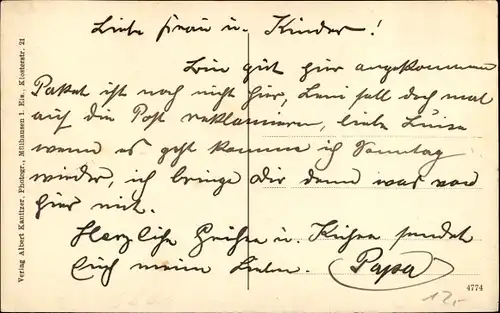 Liebe Frau u. Kinder!
Bin gut hier angekommen
Paket ist noch nicht hier, Leni soll doch mal
auf die Post reklamieren, liebe Luise
wenn es geht komme ich Sonntag
wieder, ich bringe Dir dann was von
hier mit.
Herzliche Grüße u. Küsse sendet
Euch meine Lieben. Papa
Verlag Albert Kanitzer, Photogr., Mülhausen i. Els., Klosterstr. 21
4774
12,-